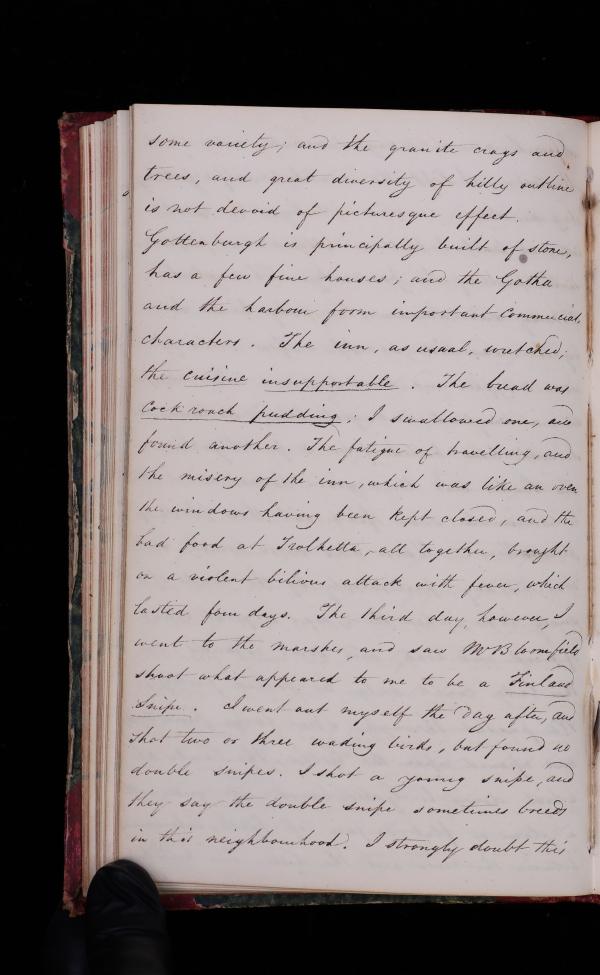 some variety; and the granite crags and
trees, and great diversity of hilly outline
is not devoid of picturesque effect.
Gottenburgh is principally built of stone,
has a few fine houses; and the Gotha
and the harbour form important commercial
characters. The inn, as usual, wretched;
the cuisine insupportable. The bread was
Cock roach pudding; I swallowed one, and
found another. The fatigue of travelling, and
the misery of the inn, which was like an oven
the windows having been kept closed, and the
bad food at Trolhetta, all together, brought
on a violent bilious attack with fever, which
lasted four days. The third day, however, I
went to the marshes, and saw Mr Bloomfield
shoot what appeared to me to be a Finland
Snipe. I went out myself the day after, and
shot two or three wading birds, but found no
double snipes. I shot a young snipe, and
they say the double snipe sometimes breeds
in this neighbourhood. I strongly doubt this